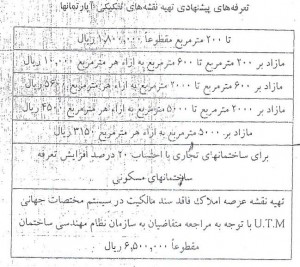 تعرفه‌های پیشنهادی تهیه نقشه‌های تفکیکی آپارتمانها
تا ۲۰۰ مترمربع مقطوعاً ۱,۸۰۰,۰۰۰ ریال
مازاد بر ۲۰۰ مترمربع تا ۶۰۰ مترمربع به ازاء هر مترمربع ۱۰,۰۰۰ ریال
مازاد بر ۶۰۰ مترمربع تا ۲۰۰۰ مترمربع به ازاء هر مترمربع ریال
مازاد بر ۲۰۰۰ مترمربع تا ۵۰۰۰ مترمربع به ازاء هر مترمربع ۴۵۰۰ ریال
مازاد بر ۵۰۰۰ مترمربع به ازاء هر مترمربع ۳۱۵۰ ریال
برای ساختمانهای تجاری با احتساب ۲۰ درصد افزایش تعرفه
ساختمانهای مسکونی
تهیه نقشه عرصه املاک فاقد سند مالکیت در سیستم مختصات جهانی
U.T.M با توجه به مراجعه متقاضیان به سازمان نظام مهندسی ساختمان
مقطوعاً ۶,۵۰۰,۰۰۰ ریال